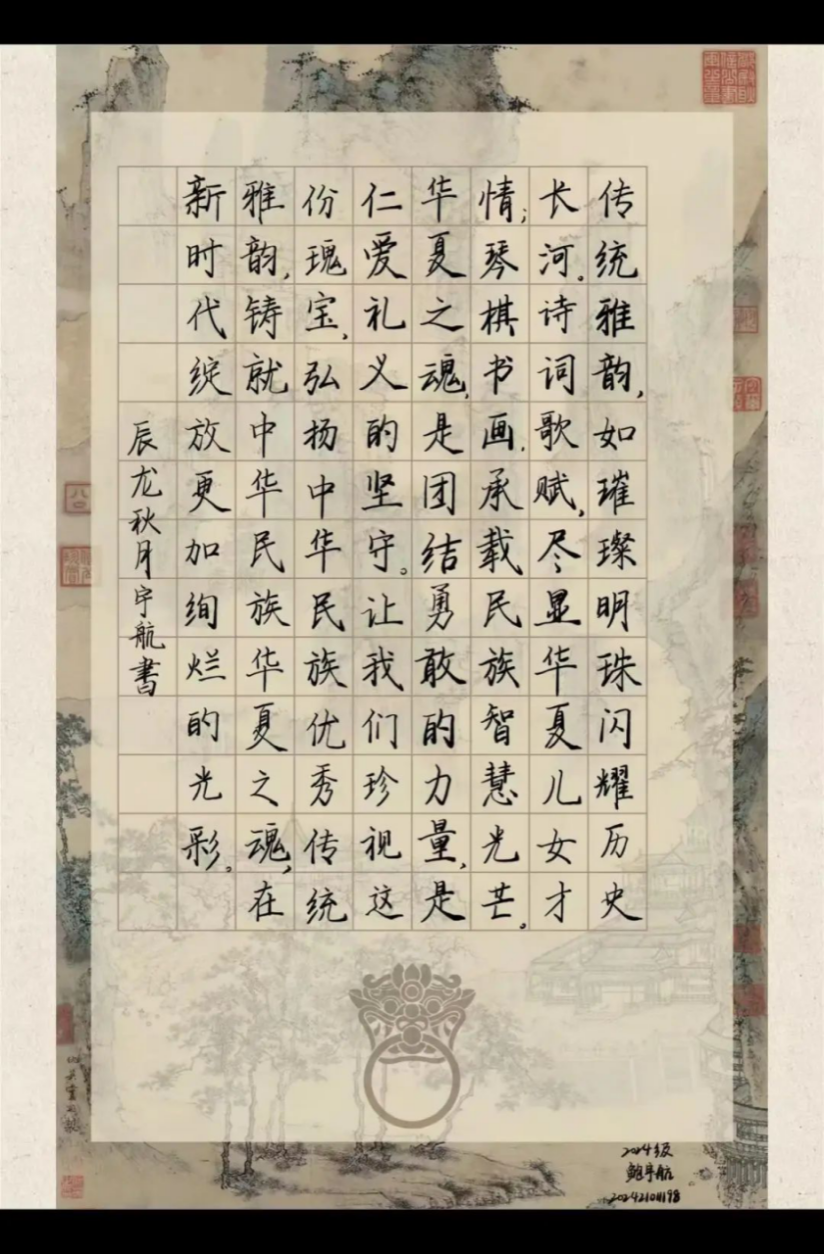 传统雅韵,如璀璨明珠闪耀历史
长河。诗词歌赋,尽显华夏儿女才
情;琴棋书画,承载民族智慧光芒。
华夏之魂,是团结勇敢的力量,是
仁爱礼义的坚守。让我们珍视这
份瑰宝,弘扬中华民族优秀传统
雅韵,铸就中华民族华夏之魂,在
新时代绽放更加绚烂的光彩。
辰龙秋月宇航書
2024级
鲍宇航